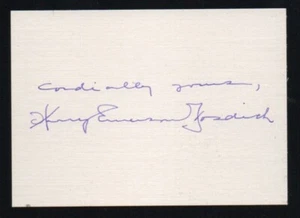 Cordially yours,
Harry Emerson Fosdick